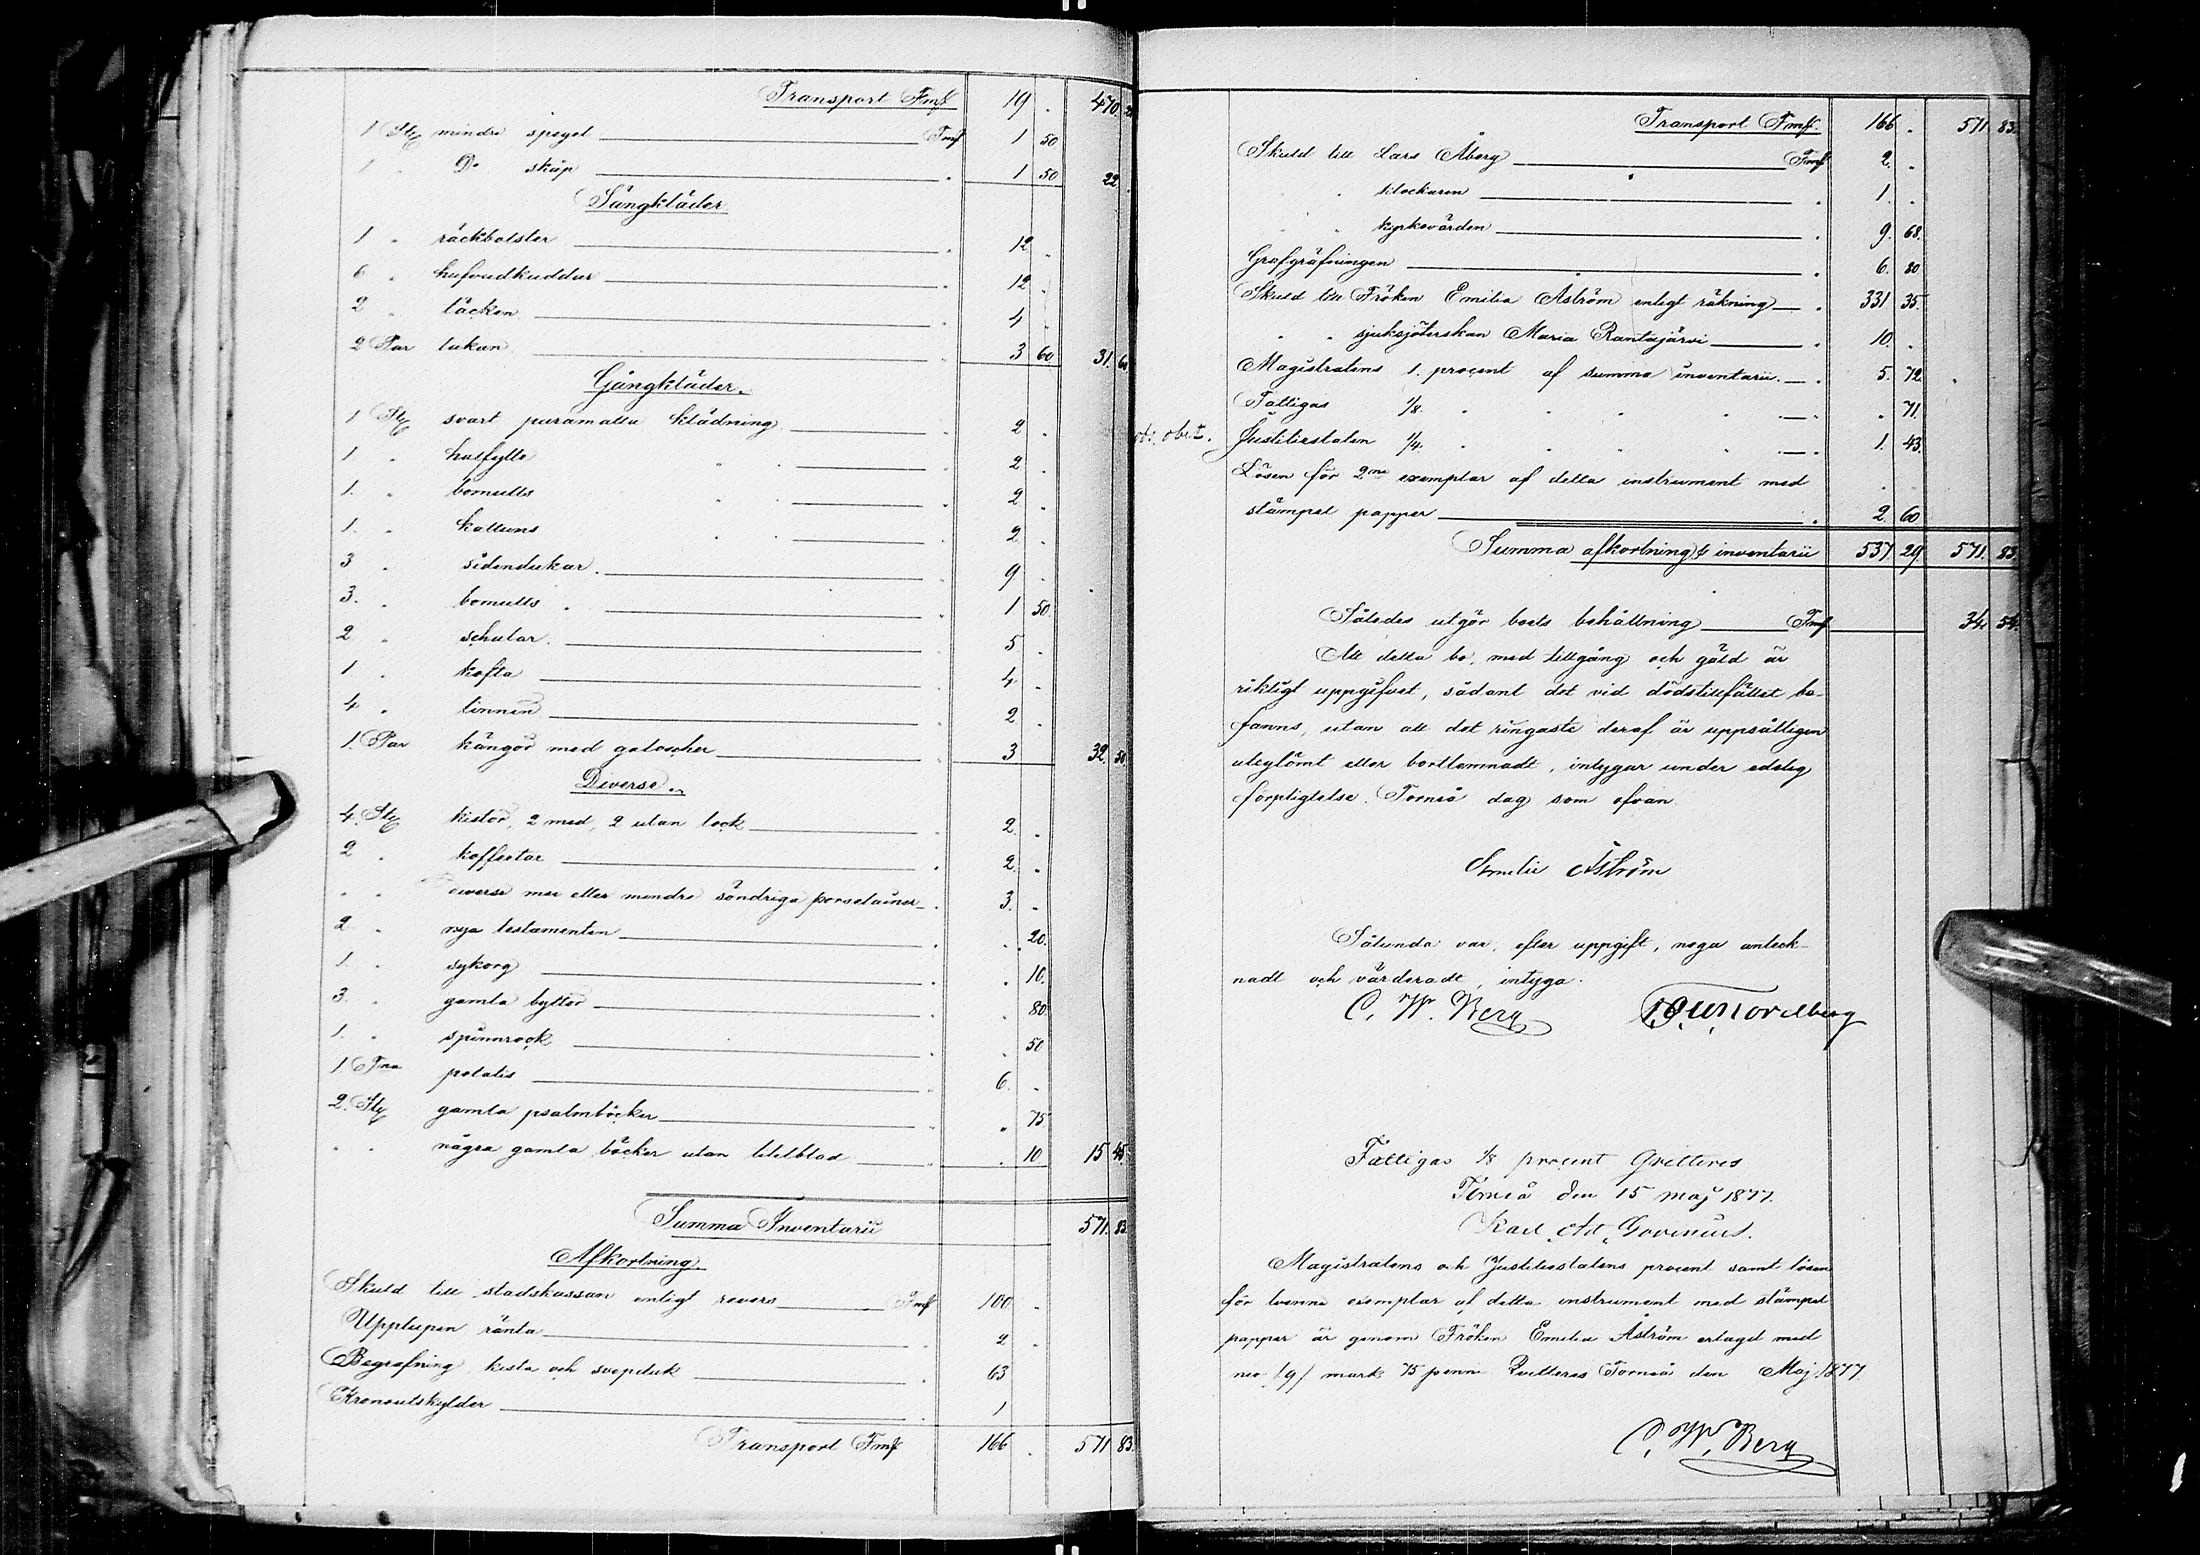 Transport Fmk 19 . 470. 28
1 Stk mindre spegel Fmk 1 50
1 " Do skåp " 1 50 22 .
Sängkläder
1 " räckbolster " 12 "
6 " hufvudkuddar " 12 .
2 " täcken " 4 "
2 Par lakan " 3 60 31. 60
Gångkläder.
1 Stk svart paramatta klädning " 2 .
1 " halfylle " " 2 .
1. " bomulls " " 2 .
1. " kattuns " " 2 .
3 " sidendukar. " 9 .
3. " bomulls " " 1 50.
2 " schalar. " 5 .
1 " kofta " 4 .
4 " linnen " 2 .
1. Par kängor med galoscher " 3 32 50.
Diverse.
4. Stk kistor, 2 med, 2 utan lock " 2 .
2 " koffertar " 2 .
" " diverse mer eller mindre söndriga porselainer " 3. .
2 " nya testamenten " . 20.
1. " sykorg " . 10.
3. " gamla byttor " . 80
1. " spinnrock " . 50
1 Tna potatis " 6. .
2. Stk gamla psalmböcker " " 75
" " några gamla böcker utan titelblad " . 10 15 45.
Summa Inventarii 571. 83.
Afkortning.
Skuld till stadskassan enligt revers Fmk 100 .
Upplupen ränta " 2 .
Begrafning, kista och svepduk " 63
Kronoutskylder " 1
Transport Fmk 166 . 571 83.
Transport Fmk. 166 . 571 83.
Skuld till Lars Åberg Fmk 2. .
" " klockaren " 1. .
" " kyrkovärden " 9. 68.
Grafgräfningen " 6. 80
Skuld till Fröken Emilia Åström enligt räkning " 331 35.
" " sjuksköterskan Maria Rantajärvi " 10. .
Magistratens 1. procent af summa inventarii. " 5. 72.
Fattigas 1/8. " " " " " . 71.
Justitiestaten 1/4. " " " " " 1. 43.
Lösen för 2ne exemplar af detta instrument med
stämpel papper " 2. 60
Summa afkortning & inventarii 537 29. 571. 83.
Således utgör boets behållning Fmk 34. 54.
Att detta bo, med tillgång och gäld är
riktigt uppgifvet, sådant det vid dödstillfället be-
fanns, utan att det ringaste deraf är uppsåtligen
uteglömt eller bortlemnadt, intygar under edelig
förpligtelse. Torneå dag som ofvan.
Emilie Åström
Sålunda var, efter uppgift, noga anteck-
nadt och värderadt, intyga.
C. W. Berg Nordberg
Fattigas 1/8 procent Qvitteras
Torneå den 15 maj 1877.
Karl Ad.
Magistratens och Justitiestatens procent samt lösen
för tvenne exemplar af detta instrument med stämpel
papper är genom Fröken Emilia Åström erlagd med
nio /9/ mark 75 penni Qvitteras Torneå den Maj 1877.
C. W. Berg